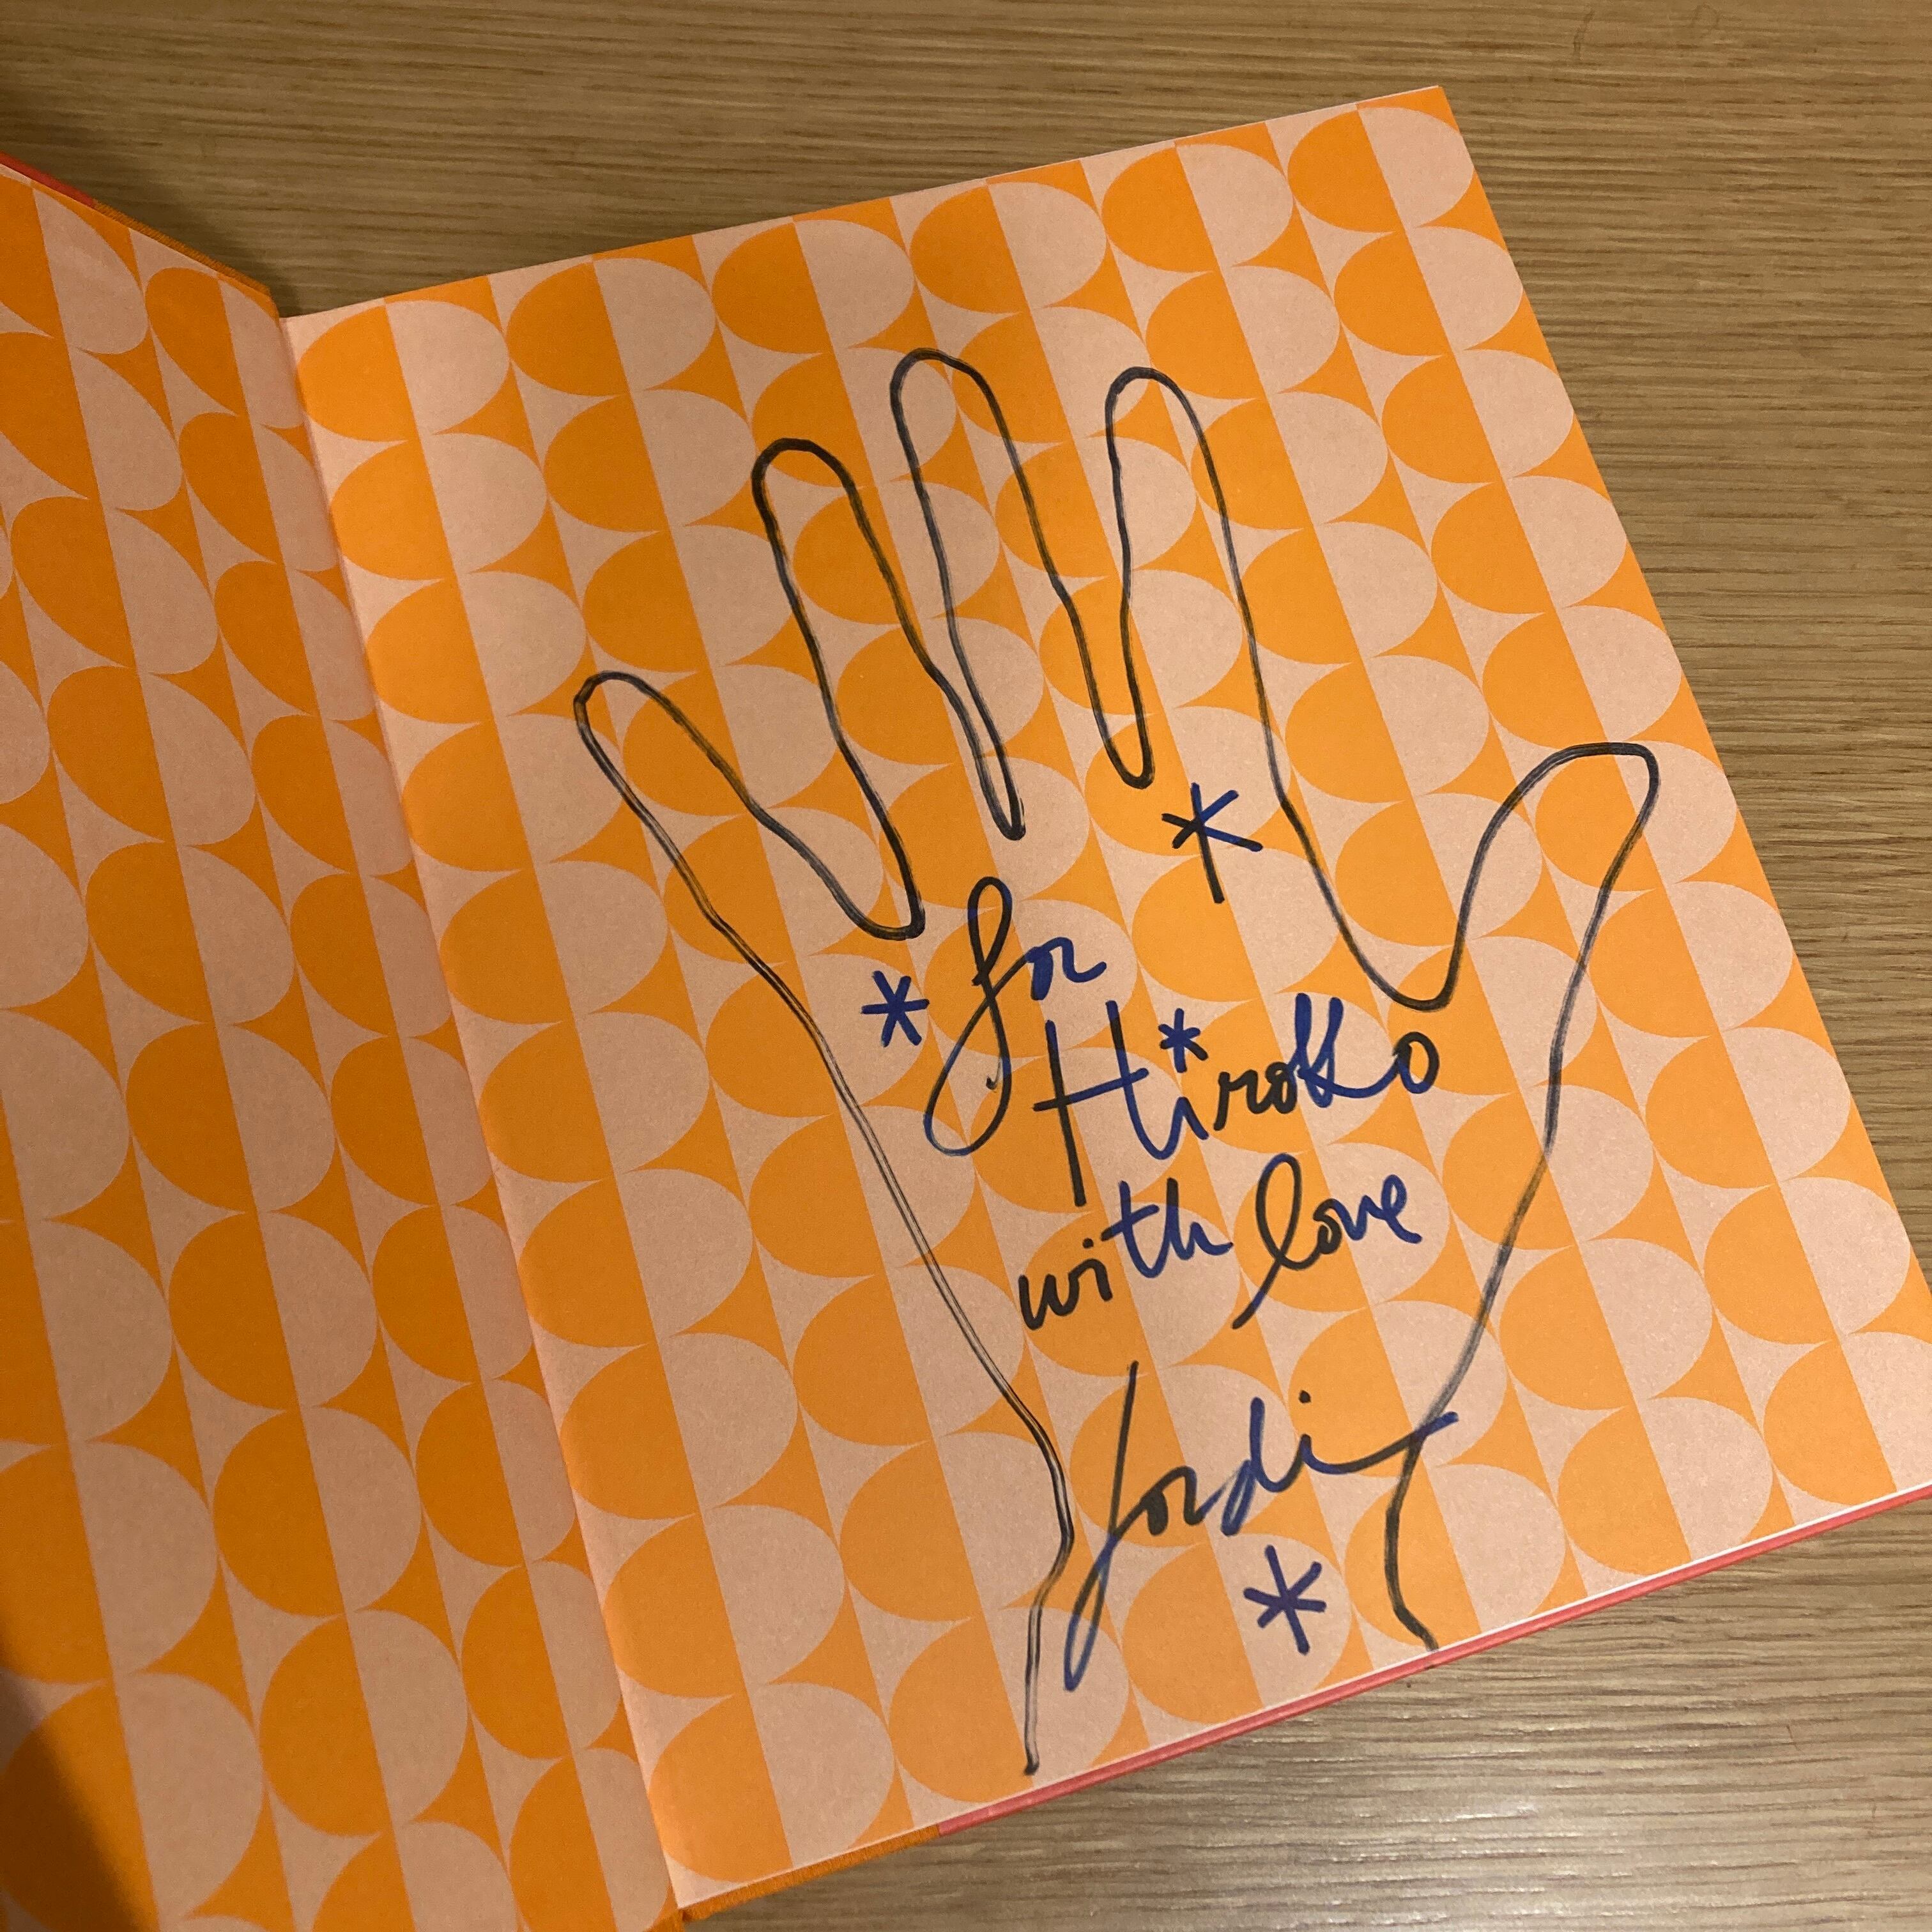 for
Hiroko
with love
Jordi